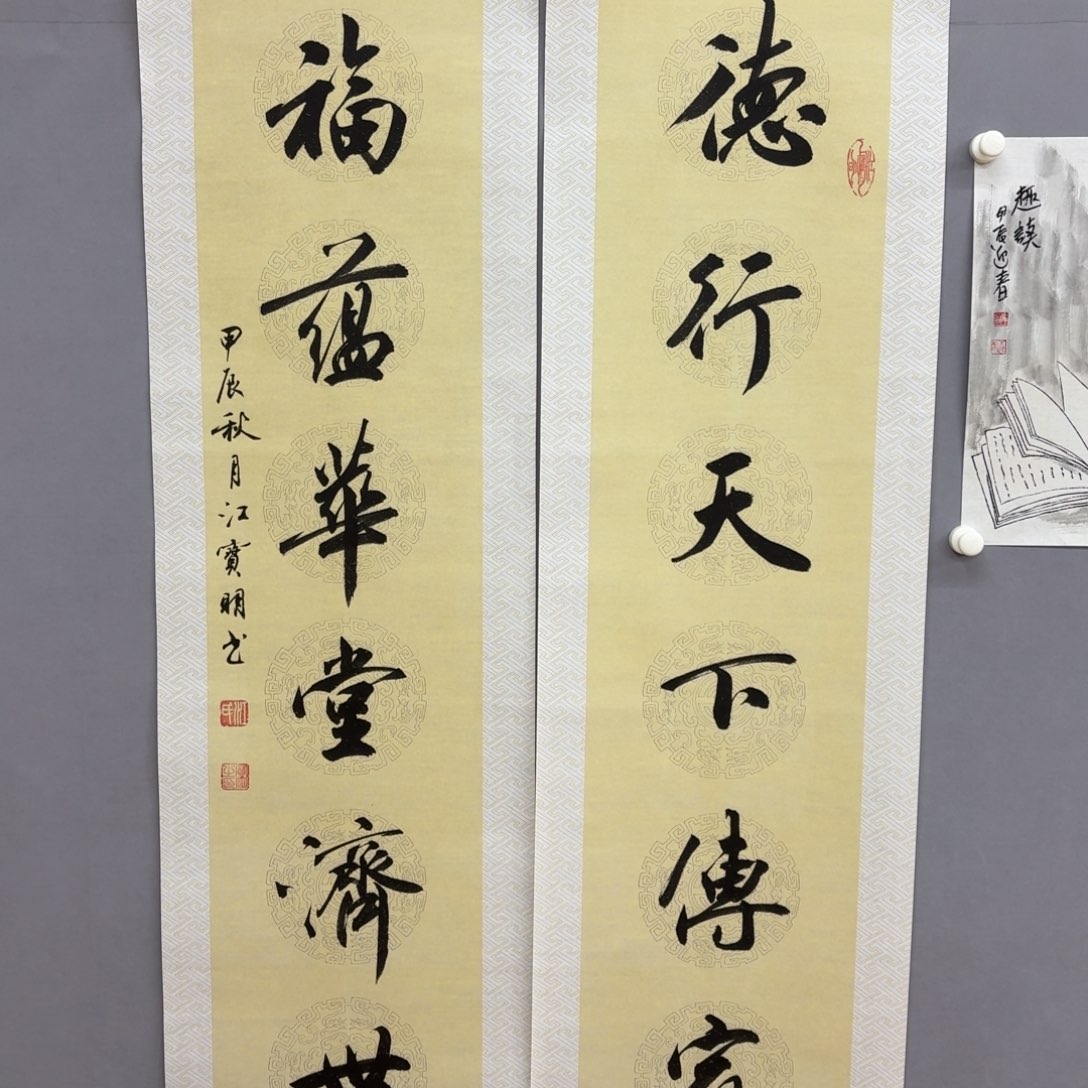 德行天下傳家
福蘊華堂濟世
甲辰秋月江寶明书
趣談
甲辰迎春